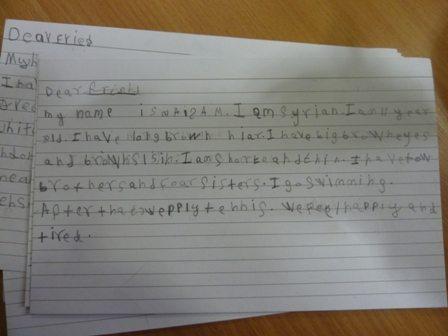 Dear Fried
Myh
I ha
Dear friend
my name is I am Syrian. I am 11 year
old. I have long brown hiar. I have big brown eyes
and brown sisin. I am shorte and thin. I have tow
brothers and foar sisters. I go swimming.
After that we pply tennis. we feel happly and
tired.